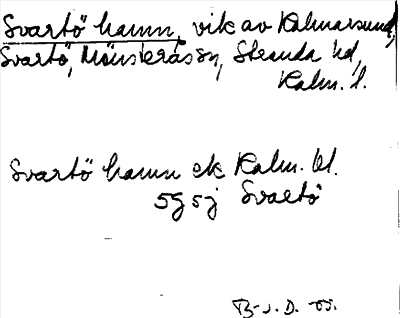 Svartö hamn, vik av Kalmarsund,
Svartö, Mönsterås sn, Stranda hd,
Kalm. l.
Svartö hamn ek Kalm. bl.
5G5j Svartö
B-s. D.